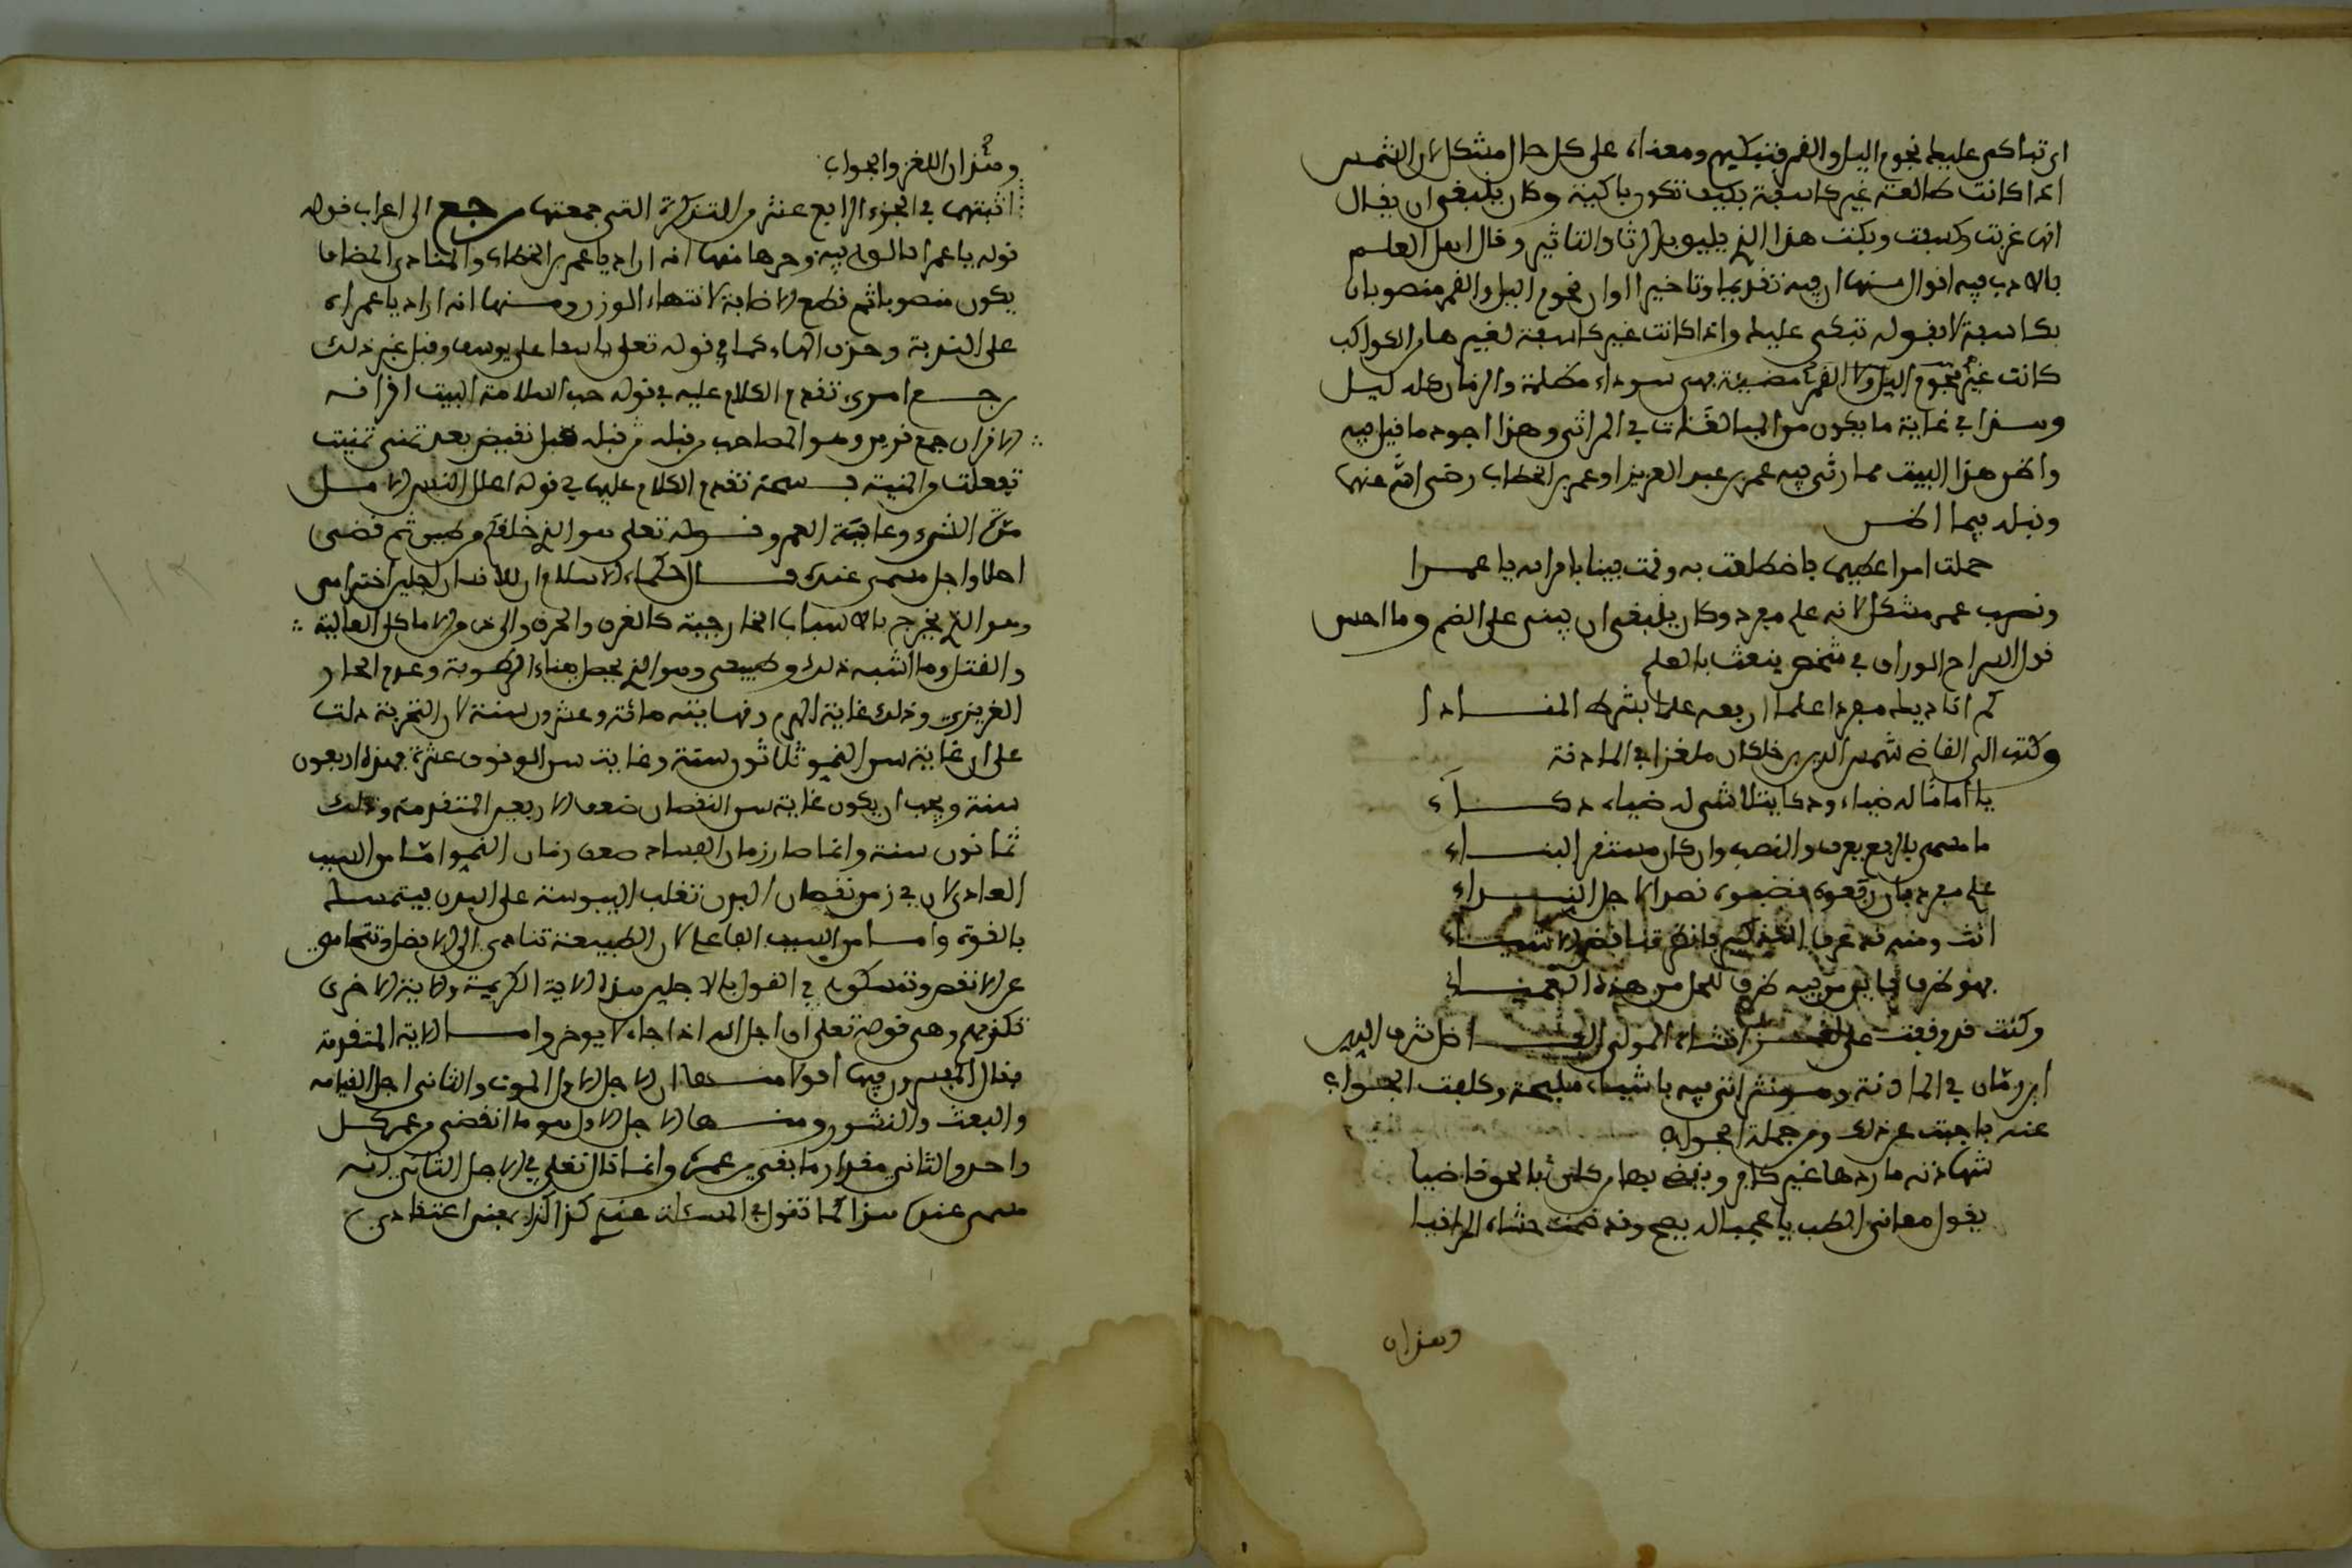 ان تباكى عليك نجوم الليل والقمر فتبكيهم ومعناه على كل حال مشكل لان الشمس
اذا كانت طالعة غير كاسفة فكيف تكون باكية وكان ينبغي ان يقال
انها غربت وكسفت وبكت هذا الذي يليق بالرثا والتاثير وقال اهل العلم
بالادب فيه اقوال منها ان فيه تقديما وتاخيرا اوان نجوم الليل والقمر منصوبان
بكاسفة لا بقوله تبكى عليك واذا كانت غير كاسفة لغيرها من الكواكب
كانت غير نجوم الليل ولا القمر مضيئة فهى سوداء مظلمة والزمان كله ليل
وهذا في غاية ما يكون من المبالغات في المراثي وهذا اجود ما قيل فيه
واظن هذا البيت مما رثي فيه عمر بن عبد العزيز او عمر بن الخطاب رضى الله عنهما
وقبله فيما اظن
حملت امرا عظيما فاضطلعت به وقمت فينا بامر الله يا عمرا
ونصب عمر مشكل لانه علم مفرد وكان ينبغى ان يبنى على الضم وما احسن
قول السراج الوراق في شخص ينعت بالعلم
كم اناديك مفردا علما ارفعه علما بشرط المنادا
وكتب الى القاضى شمس الدين بن خلكان ملغزا في الماذنة
يا اماما له ضياء ذكاء يتلاشى له ضياء ذكاء
ما مسمى بالرفع يعرف والنصب وان كان مستقر البناء
علم مفرد فان رفعوه فضموه نصرا لاجل النداء
انث ومنه قد عرف التذكير فانظر تناقض الاشياء
فهو ظرف فاين من فيه ظرف للحل من هذه العمياء
وكنت قد وقفت على لغز انشاه المولى الفاضل شرف الدين
ابن ريان في الماذنة وهو نثر اتى فيه باشياء مليحة وكلفت الجواب
عنه فاجبت عن ذلك ومن جملة الجواب
شهادته ما ردها غير كافر ويقضي بها من كان بالحق قاضيا
يقول معاني الطب يا عجبا له يصح وقد ضمت حشاه المراقيا
وهذان
وهذان اللغز والجواب
اثبتهما في الجزء الرابع عشر من التذكرة التى جمعتها رجع الى اعراب قوله
قوله يا عمرا فالوله فيه وجوها منها انه اراد يا عمر بن الخطاب والمنادى المضافا
يكون منصوبا ثم قطع الاضافة لانتهاء الوزن ومنها انه اراد يا عمراه
على الندبة وحذف الهاء كما في قوله تعلى يا اسفا على يوسف وقيل غير ذلك
رجع امرى تقدم الكلام عليه في قوله حب السلامة البيت اقرانه
الاقران جمع قرين وهو المصاحب من قبله من قبله قبل نقيض بعد تمنى تمنيت
تفعلت والمنية فسحة تقدم الكلام عليها في قوله اعلل النفس الاجل
مدة الشيء وعاقبة العمر وقوله تعلى هو الذي خلقكم من طين ثم قضى
اجلا واجل مسمى عنده قال حكماء الاسلام ان للانسان اجلين اخترامى
وهو الذي يخرج بالاسباب الخارجية كالغرق والحرق والردى من الاماكن العالية
والقتل وما اشبه ذلك وطبيعى وهو الذي يحصل بفناء الرطوبة وعدم الحار
الغريزي وذلك غاية الهرم ونهايته مائة وعشرون سنة لان التجربة دلت
على ان غاية سن النمو ثلاثون سنة وغاية سن الوقوف عشرة فهذه اربعون
سنة ويجب ان يكون غاية سن النقصان ضعف الاربعين المتقدمة وذلك
ثمانون سنة وانما صار زمان الفساد ضعف زمان النمو اما من السبب
العادى لان في زمن نقصان البدن تغلب اليبوسة على البدن فيتمسك
بالقوة واما من السبب الفاعل لان الطبيعة تنادى الى الافضل وتتحامى
عن الانقص وتمسكون في القول بالاجلين هذه الاية الكريمة والاية الاخرى
تكذبهم وهى قوله تعلى ان اجل الله اذا جاء لا يوخر واما الاية المتقدمة
فقال المفسرون فيها اقولا منها ان الاجل الاول الموت والثانى اجل القيامه
والبعث والنشور ومنها الاجل الاول هو ما انقضى من عمر كل
واحد والثانى مقدار ما بقى من عمره وانما قال تعلى في الاجل الثاني لانه
مسمى عنده هذا كما تقول في المسئلة عندي كذا كذا بمعنى اعتقادي